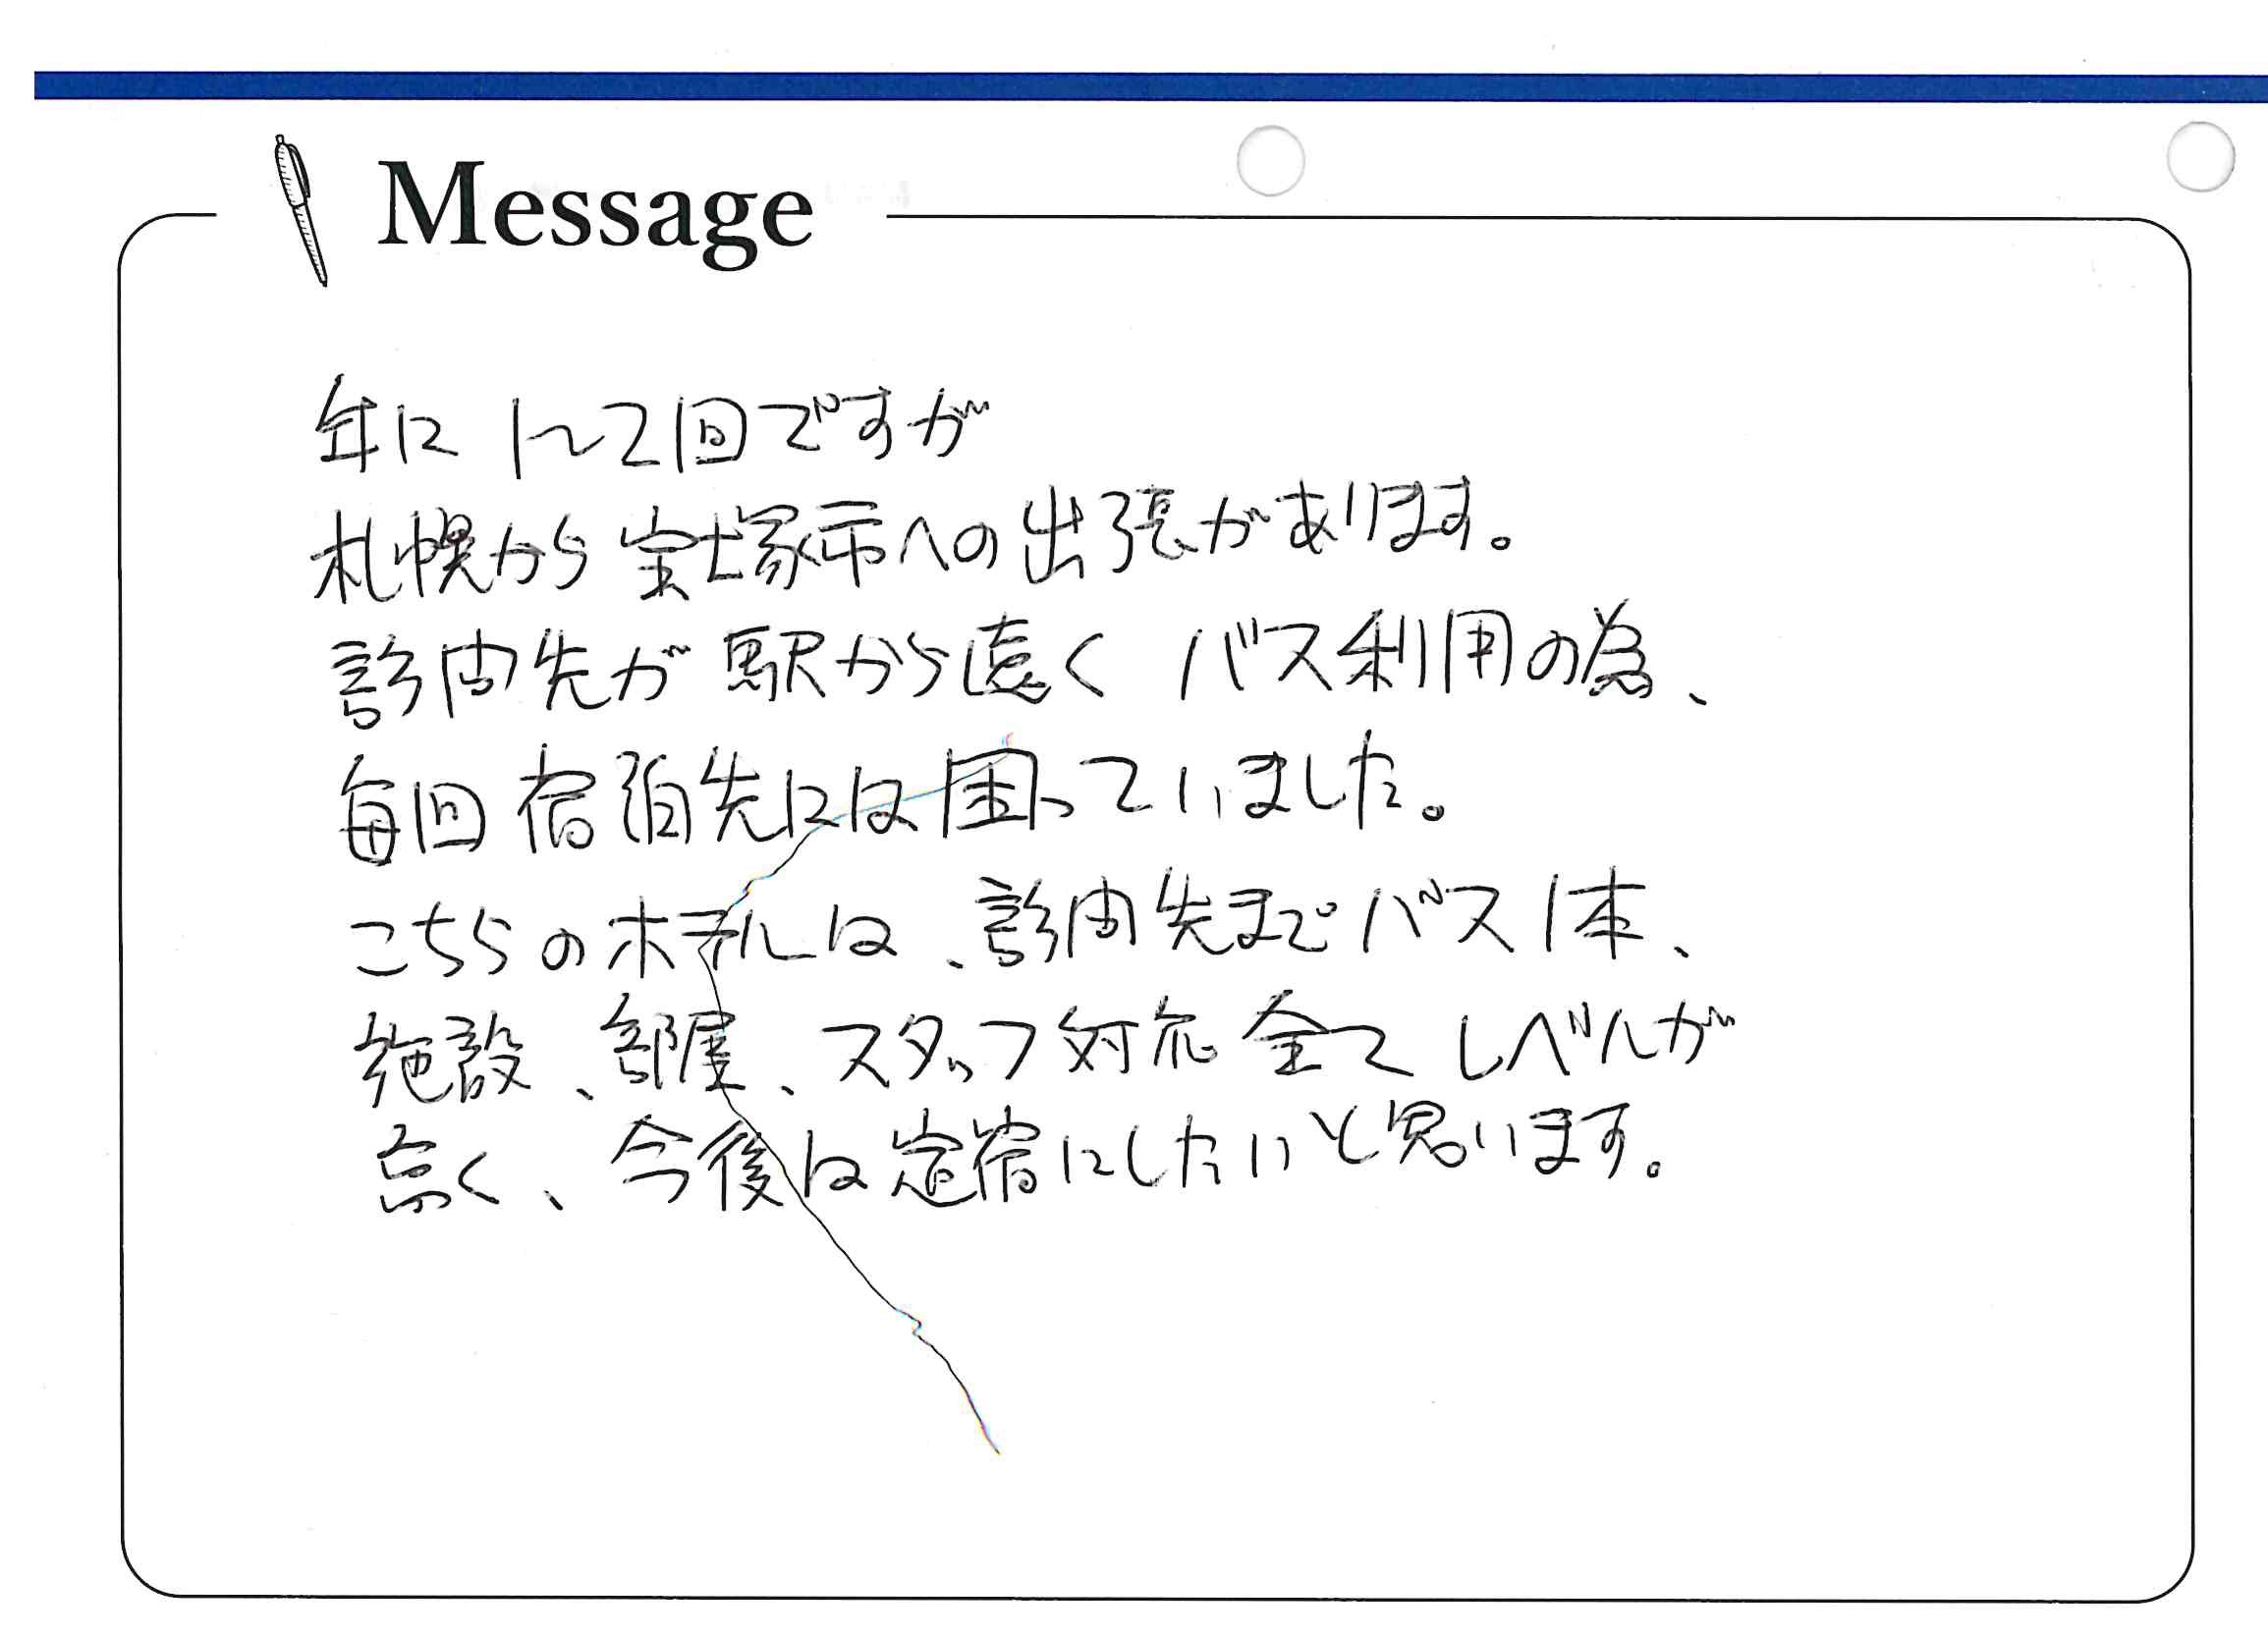 Message
年に1~2回ですが
札幌から宝塚市への出張があります。
訪問先が駅から遠くバス利用の為、
毎回宿泊先には困っていました。
こちらのホテルは、訪問先までバス1本、
施設、部屋、スタッフ対応全てレベルが
高く、今後は定宿にしたいと思います。